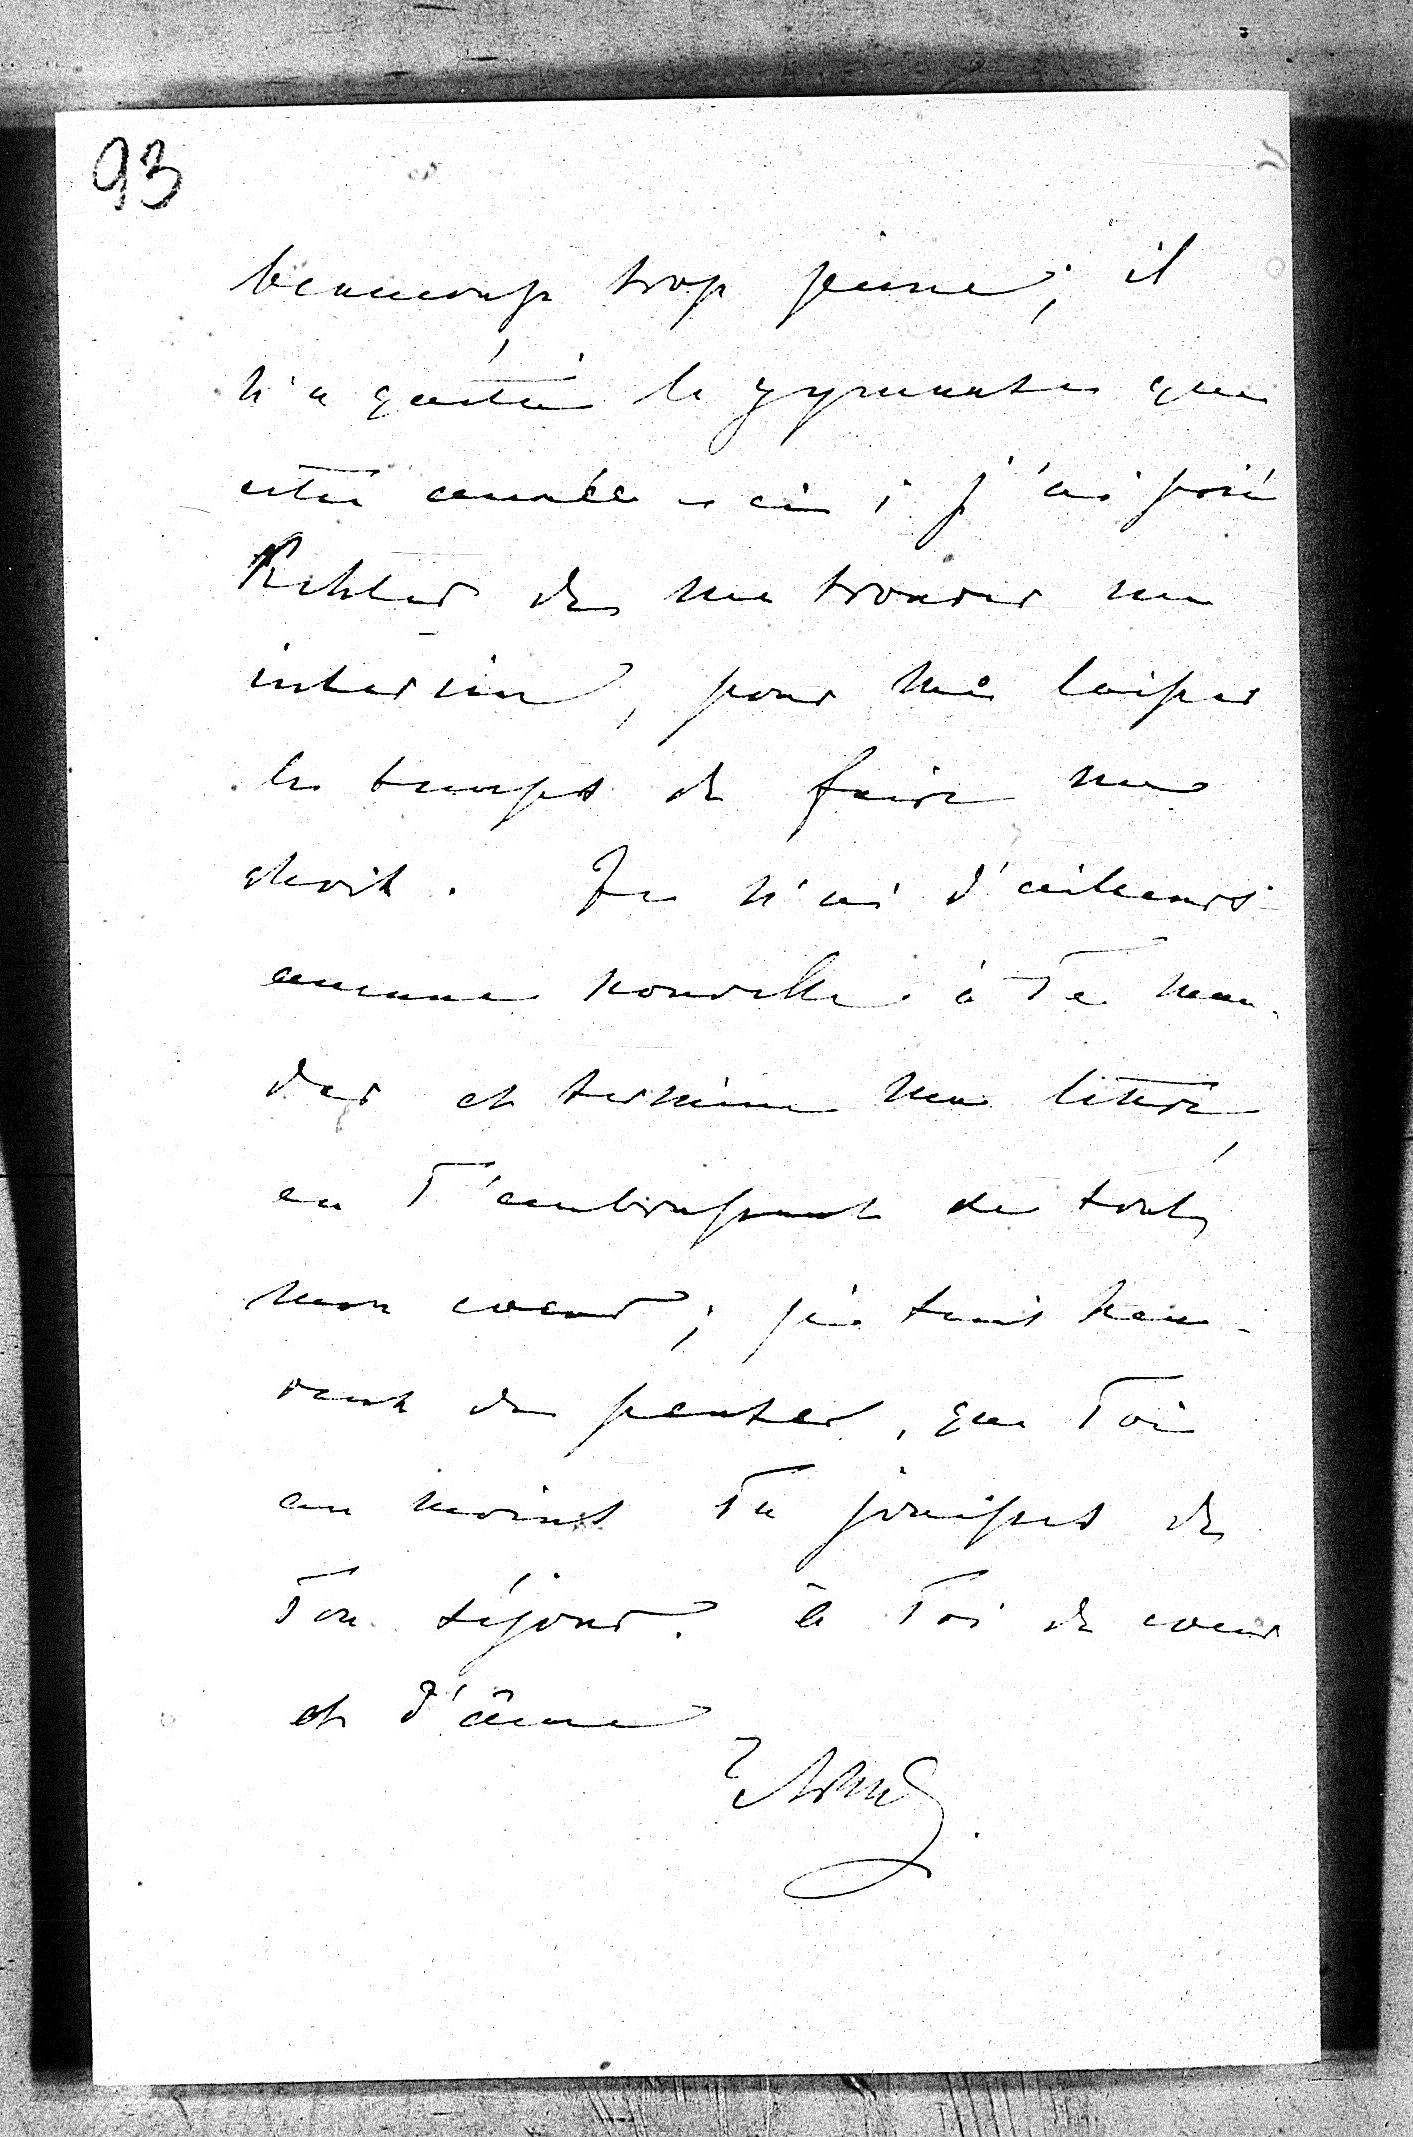 93
beaucoup trop jeune; il
n'a quitté le gymnase que
cette année-ci; j'ai prié
de me trouver un
interim, pour me laisser
le temps de faire un
choix. Je n'ai d'ailleurs
aucune nouvelle à Te man-
der et termine ma lettre,
en T'embrassant de tout
mon coeur; je suis heu-
reux de penser, que Toi
au moins Tu jouisses de
Ton séjour. à Toi de coeur
et d'âme